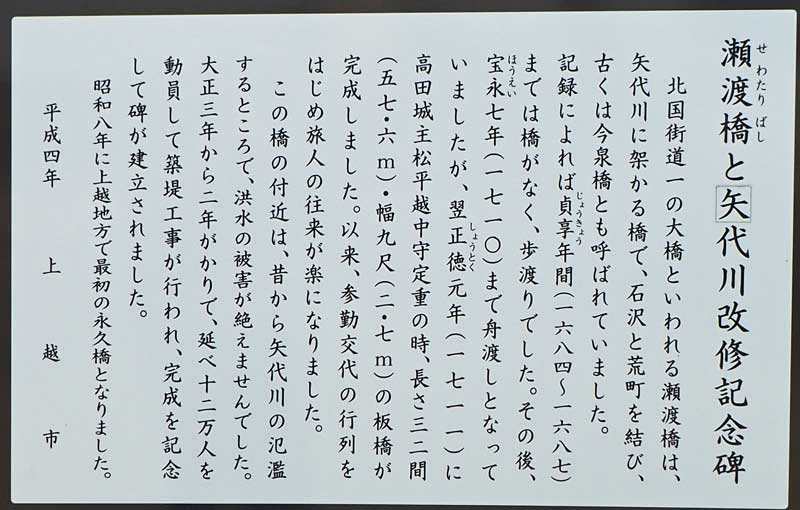 瀬渡橋と矢代川改修記念碑
せ わたり ばし
北国街道一の大橋といわれる瀬渡橋は、
矢代川に架かる橋で、石沢と荒町を結び、
古くは今泉橋とも呼ばれていました。
記録によれば貞享年間(一六八四〜一六八七)
じょうきょう
までは橋がなく、歩渡りでした。その後、
宝永七年(一七一〇)まで舟渡しとなって
ほうえい
いましたが、翌正徳元年(一七一一)に
しょうとく
高田城主松平越中守定重の時、長さ三二間
(五七・六m)・幅九尺(二・七m)の板橋が
完成しました。以来、参勤交代の行列を
はじめ旅人の往来が楽になりました。
この橋の付近は、昔から矢代川の氾濫
するところで、洪水の被害が絶えませんでした。
大正三年から二年がかりで、延べ十二万人を
動員して築堤工事が行われ、完成を記念
して碑が建立されました。
昭和八年に上越地方で最初の永久橋となりました。
平成四年 上越市